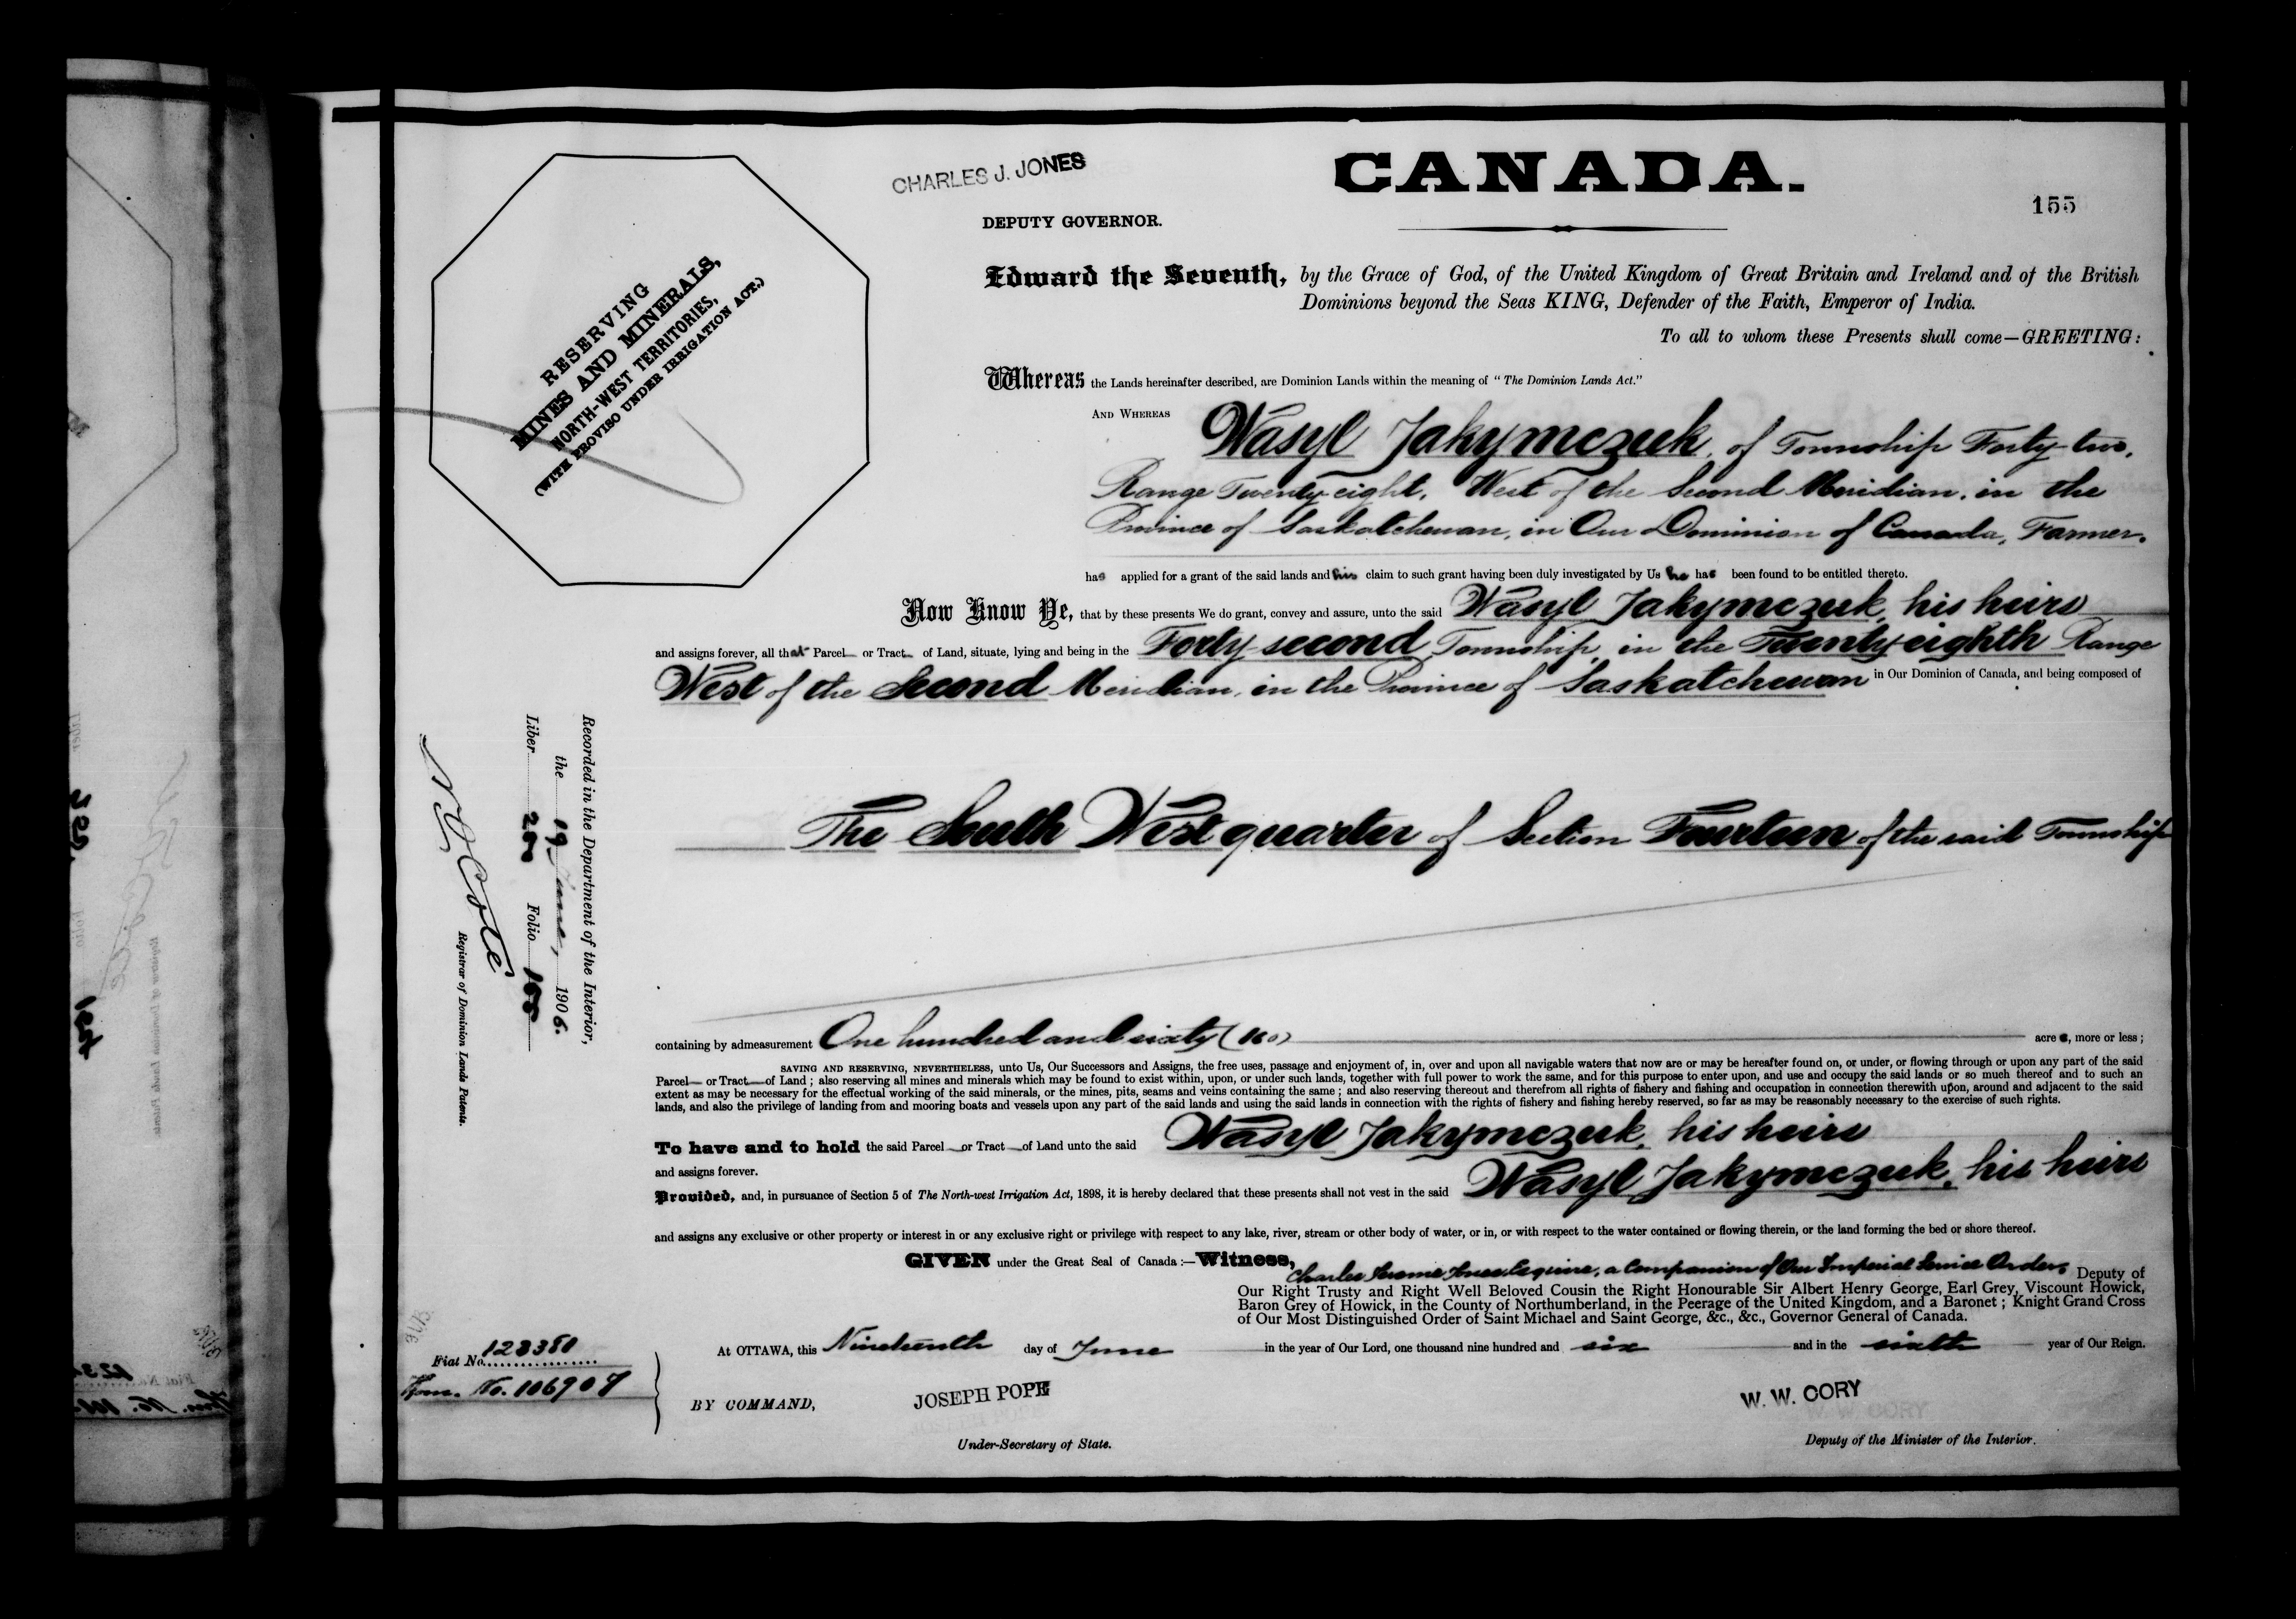 CHARLES J. JONES
CANADA.
155
DEPUTY GOVERNOR.
RESERVING
MINES AND MINERALS,
NORTH-WEST TERRITORIES,
(WITH PROVISO UNDER IRRIGATION ACT.)
Edward the Seventh, by the Grace of God, of the United Kingdom of Great Britain and Ireland and of the British
Dominions beyond the Seas KING, Defender of the Faith, Emperor of India.
To all to whom these Presents shall come—GREETING:
Whereas the Lands hereinafter described, are Dominion Lands within the meaning of "The Dominion Lands Act."
AND WHEREAS Wasyl Jakymczuk, of Township Forty-two,
Range Twenty-eight, West of the Second Meridian, in the
Province of Saskatchewan, in Our Dominion of Canada, Farmer.
has applied for a grant of the said lands and his claim to such grant having been duly investigated by Us he has been found to be entitled thereto.
Now Know Ye, that by these presents We do grant, convey and assure, unto the said Wasyl Jakymczuk, his heirs
and assigns forever, all that Parcel or Tract of Land, situate, lying and being in the Forty-second Township, in the Twenty-eighth Range
West of the Second Meridian, in the Province of Saskatchewan in Our Dominion of Canada, and being composed of
The South West quarter of Section Fourteen of the said Township
Recorded in the Department of the Interior,
the 19 June, 1906.
Liber 200 Folio 155
N O Coté
Registrar of Dominion Lands Patents.
containing by admeasurement One hundred and sixty (160) acres, more or less;
SAVING AND RESERVING, NEVERTHELESS, unto Us, Our Successors and Assigns, the free uses, passage and enjoyment of, in, over and upon all navigable waters that now are or may be hereafter found on, or under, or flowing through or upon any part of the said
Parcel or Tract of Land; also reserving all mines and minerals which may be found to exist within, upon, or under such lands, together with full power to work the same, and for this purpose to enter upon, and use and occupy the said lands or so much thereof and to such an
extent as may be necessary for the effectual working of the said minerals, or the mines, pits, seams and veins containing the same; and also reserving thereout and therefrom all rights of fishery and fishing and occupation in connection therewith upon, around and adjacent to the said
lands, and also the privilege of landing from and mooring boats and vessels upon any part of the said lands and using the said lands in connection with the rights of fishery and fishing hereby reserved, so far as may be reasonably necessary to the exercise of such rights.
To have and to hold the said Parcel or Tract of Land unto the said Wasyl Jakymczuk, his heirs
and assigns forever.
Provided, and, in pursuance of Section 5 of The North-west Irrigation Act, 1898, it is hereby declared that these presents shall not vest in the said Wasyl Jakymczuk, his heirs
and assigns any exclusive or other property or interest in or any exclusive right or privilege with respect to any lake, river, stream or other body of water, or in, or with respect to the water contained or flowing therein, or the land forming the bed or shore thereof.
GIVEN under the Great Seal of Canada:—Witness, Charles Jerome Jones Esquire, a Companion of Our Imperial Service Order, Deputy of
Our Right Trusty and Right Well Beloved Cousin the Right Honourable Sir Albert Henry George, Earl Grey, Viscount Howick,
Baron Grey of Howick, in the County of Northumberland, in the Peerage of the United Kingdom, and a Baronet; Knight Grand Cross
of Our Most Distinguished Order of Saint Michael and Saint George, &c., &c., Governor General of Canada.
At OTTAWA, this Nineteenth day of June in the year of Our Lord, one thousand nine hundred and six and in the sixth year of Our Reign.
Fiat No. 123380
Hom. No. 106907
BY COMMAND,
JOSEPH POPE
Under-Secretary of State.
W. W. CORY
Deputy of the Minister of the Interior.